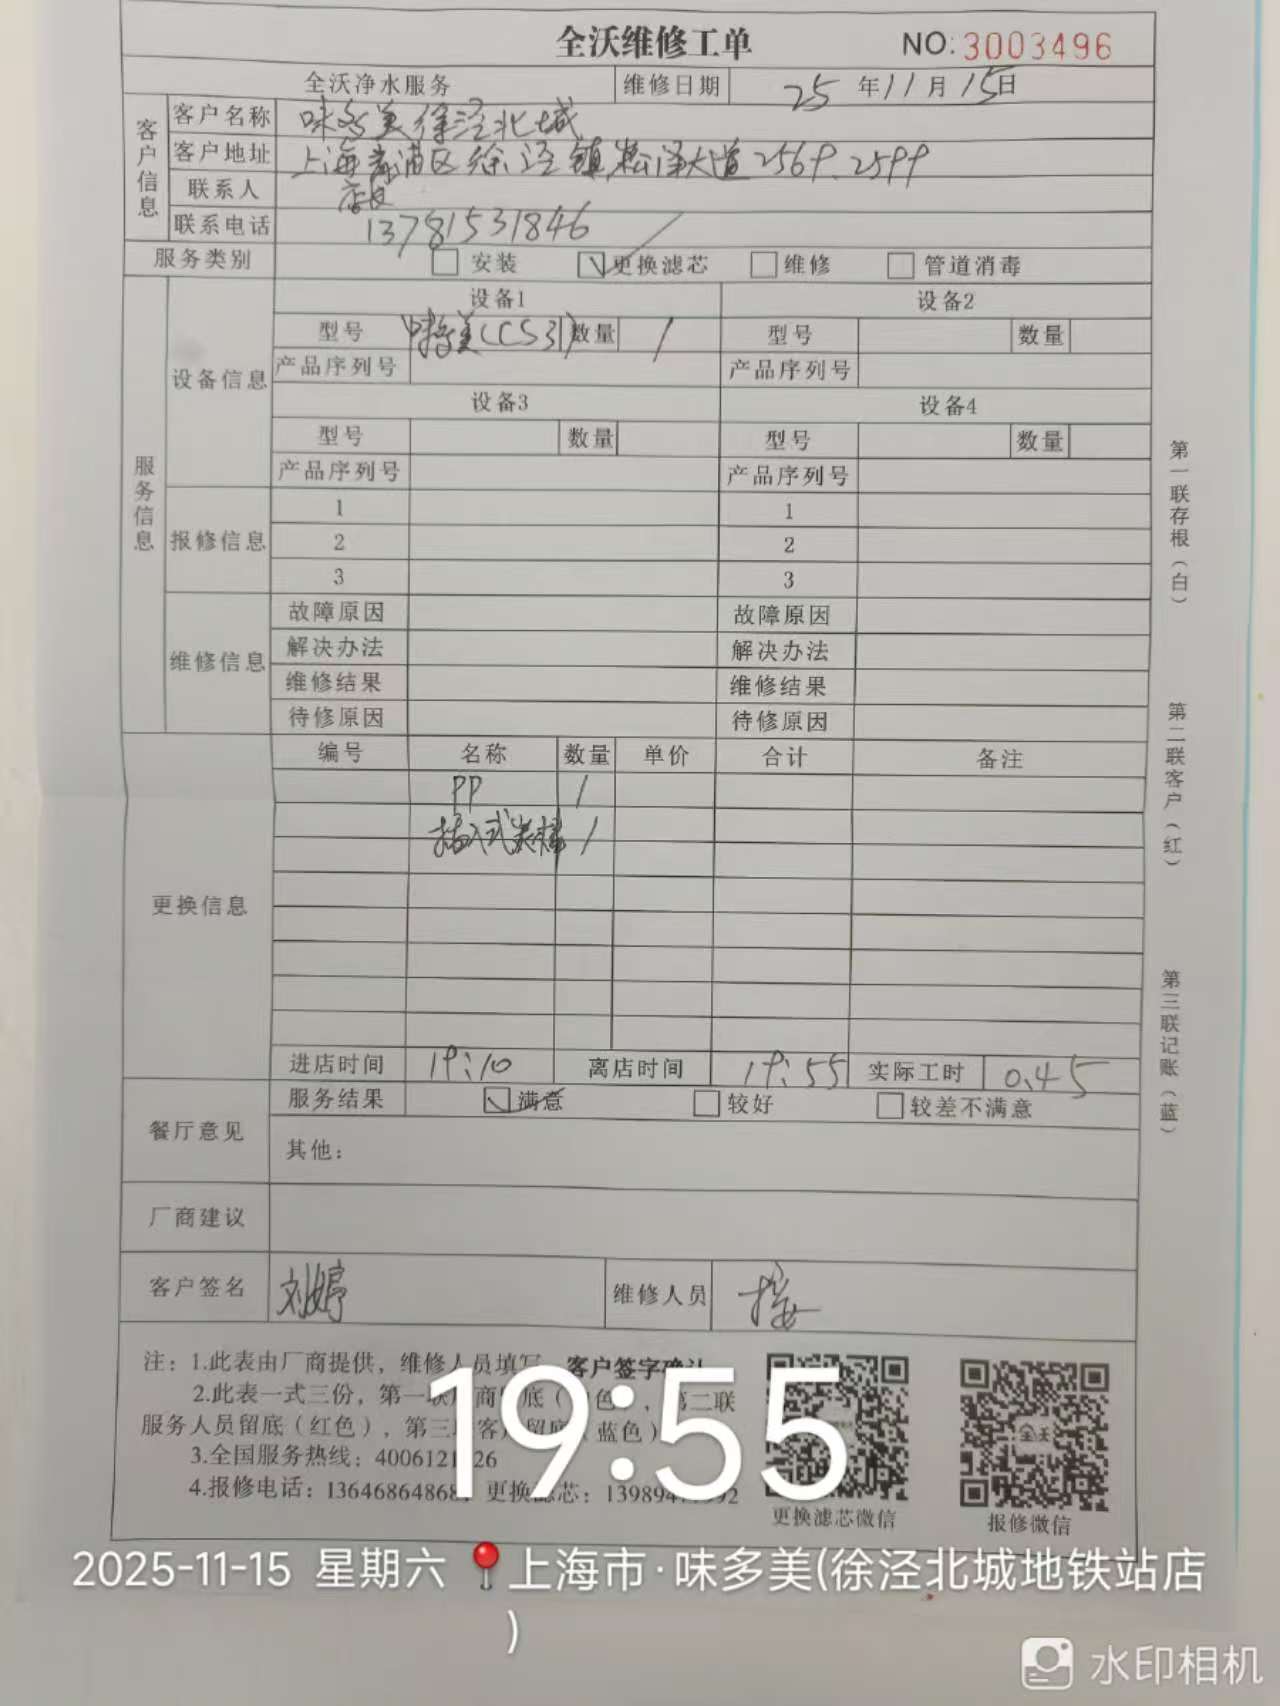 全沃维修工单 NO:3003496
全沃净水服务 维修日期 25年11月15日
客户信息
客户名称 味多美徐泾北城
客户地址 上海青浦区徐泾镇松泽大道2569、2599
联系人 店长
联系电话 13781531846
服务类别 安装 更换滤芯 维修 管道消毒
服务信息
设备信息
设备1 设备2
型号 味多美(CS3) 数量 1 型号 数量
产品序列号 产品序列号
设备3 设备4
型号 数量 型号 数量
产品序列号 产品序列号
报修信息
1 1
2 2
3 3
维修信息
故障原因 故障原因
解决办法 解决办法
维修结果 维修结果
待修原因 待修原因
更换信息
编号 名称 数量 单价 合计 备注
PP 1
插入式炭棒 1
进店时间 19:10 离店时间 19:55 实际工时 0.45
餐厅意见
服务结果 满意 较好 较差不满意
其他：
厂商建议
客户签名 刘婷 维修人员
注：1.此表由厂商提供，维修人员填写，客户签字确认
2.此表一式三份，第一联厂商留底（白色），第二联
服务人员留底（红色），第三联客户留底（蓝色）
3.全国服务热线：4006121 26
4.报修电话：1364686486 更换滤芯：139894 92
更换滤芯微信 报修微信
第一联存根（白）
第二联客户（红）
第三联记账（蓝）
19:55
2025-11-15 星期六 上海市·味多美(徐泾北城地铁站店
)
水印相机